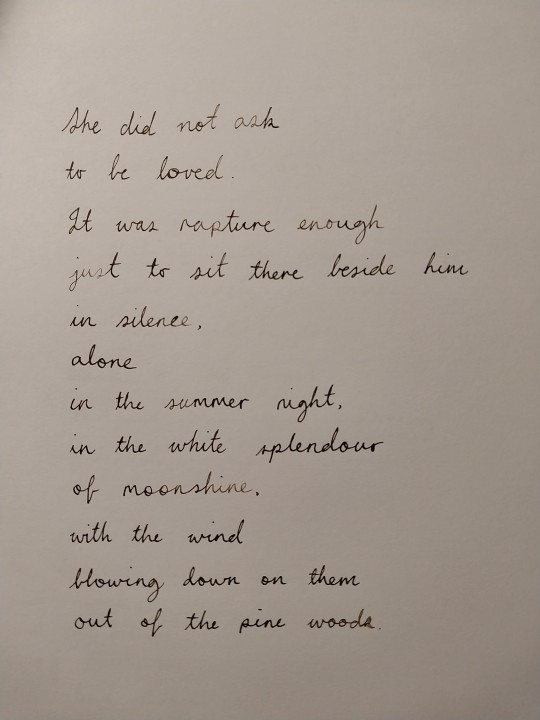 She did not ask
to be loved.
It was rapture enough
just to sit there beside him
in silence,
alone
in the summer night,
in the white splendour
of moonshine,
with the wind
blowing down on them
out of the pine woods.